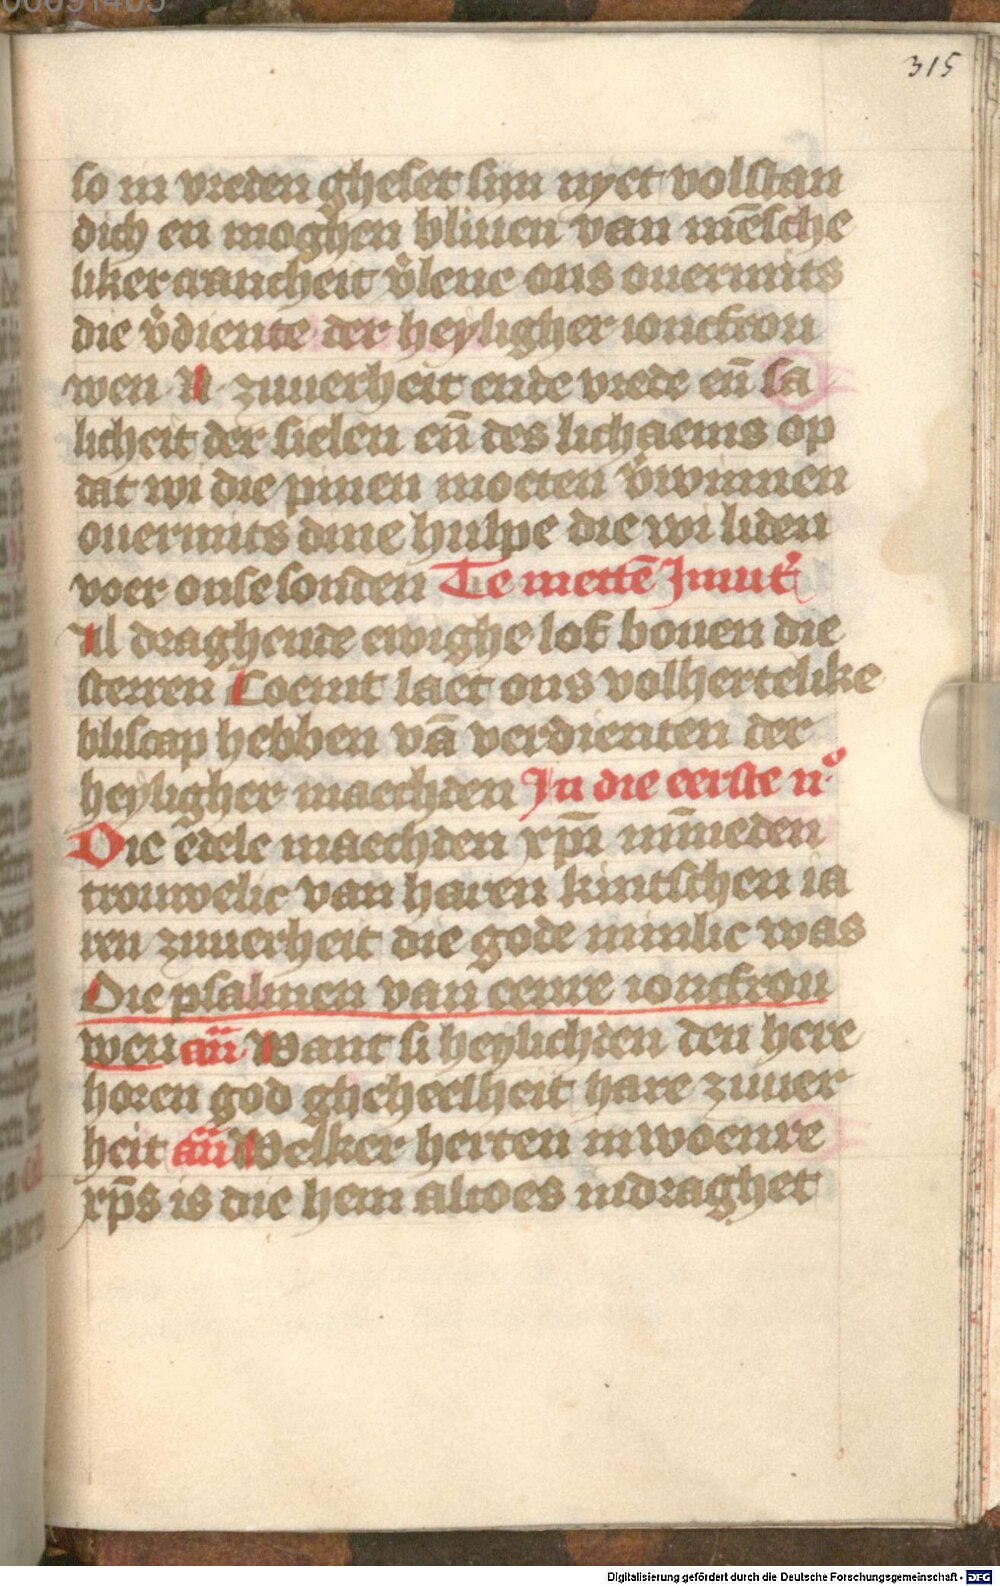 315
so in vreden gheset sijn nyet volstan
dich en moghen bliuen van mēsche
liker crancheit v̄lene ons ouermits
die v̄diente der heyligher ioncfrou
wen N zuuerheit ende vrede en̄ sa
licheit der sielen en̄ des lichaems op
dat wi die pinen moeten v̄winnen
ouermits dine hulpe die wi liden
voer onse sonden Te mettē Inuit̄
Al draghende ewighe lof bouen die
sterren Coemt laet ons volhertelike
bliscap hebben vā verdienten der
heyligher maechden In die eerste n°
Die edele maechden xp̄i min̄neden
trouwelic van haren kintschen ia
ren zuuerheit die gode minlic was
Die psalmen van eenre ioncfrou
wen an̄ Want si heylichden den here
horen god gheheelheit hare zuuer
heit an̄ Welker herten inwoenre
xp̄s is die hem altoes indraghet
Digitalisierung gefördert durch die Deutsche Forschungsgemeinschaft - DFG